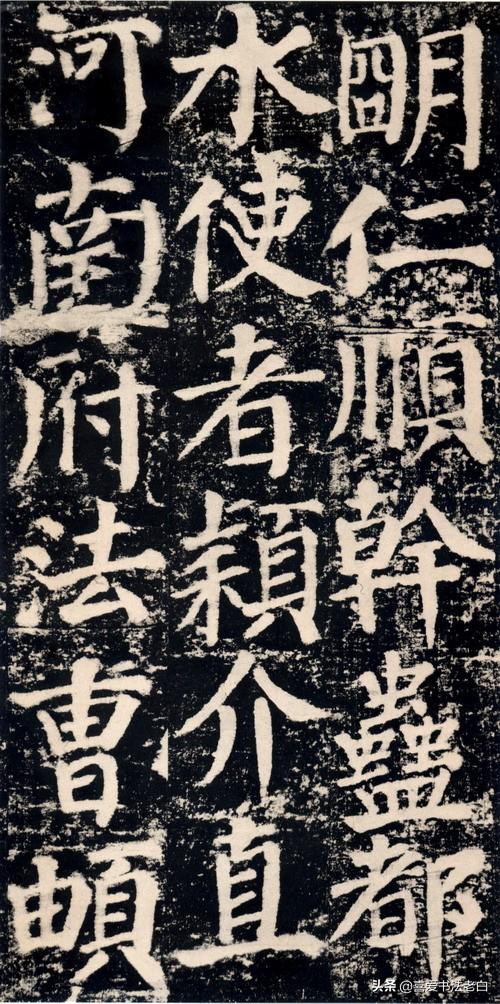 朙仁順幹蠱都
水使者穎介直
河南府法曹頔
头条 @喜爱书法老白